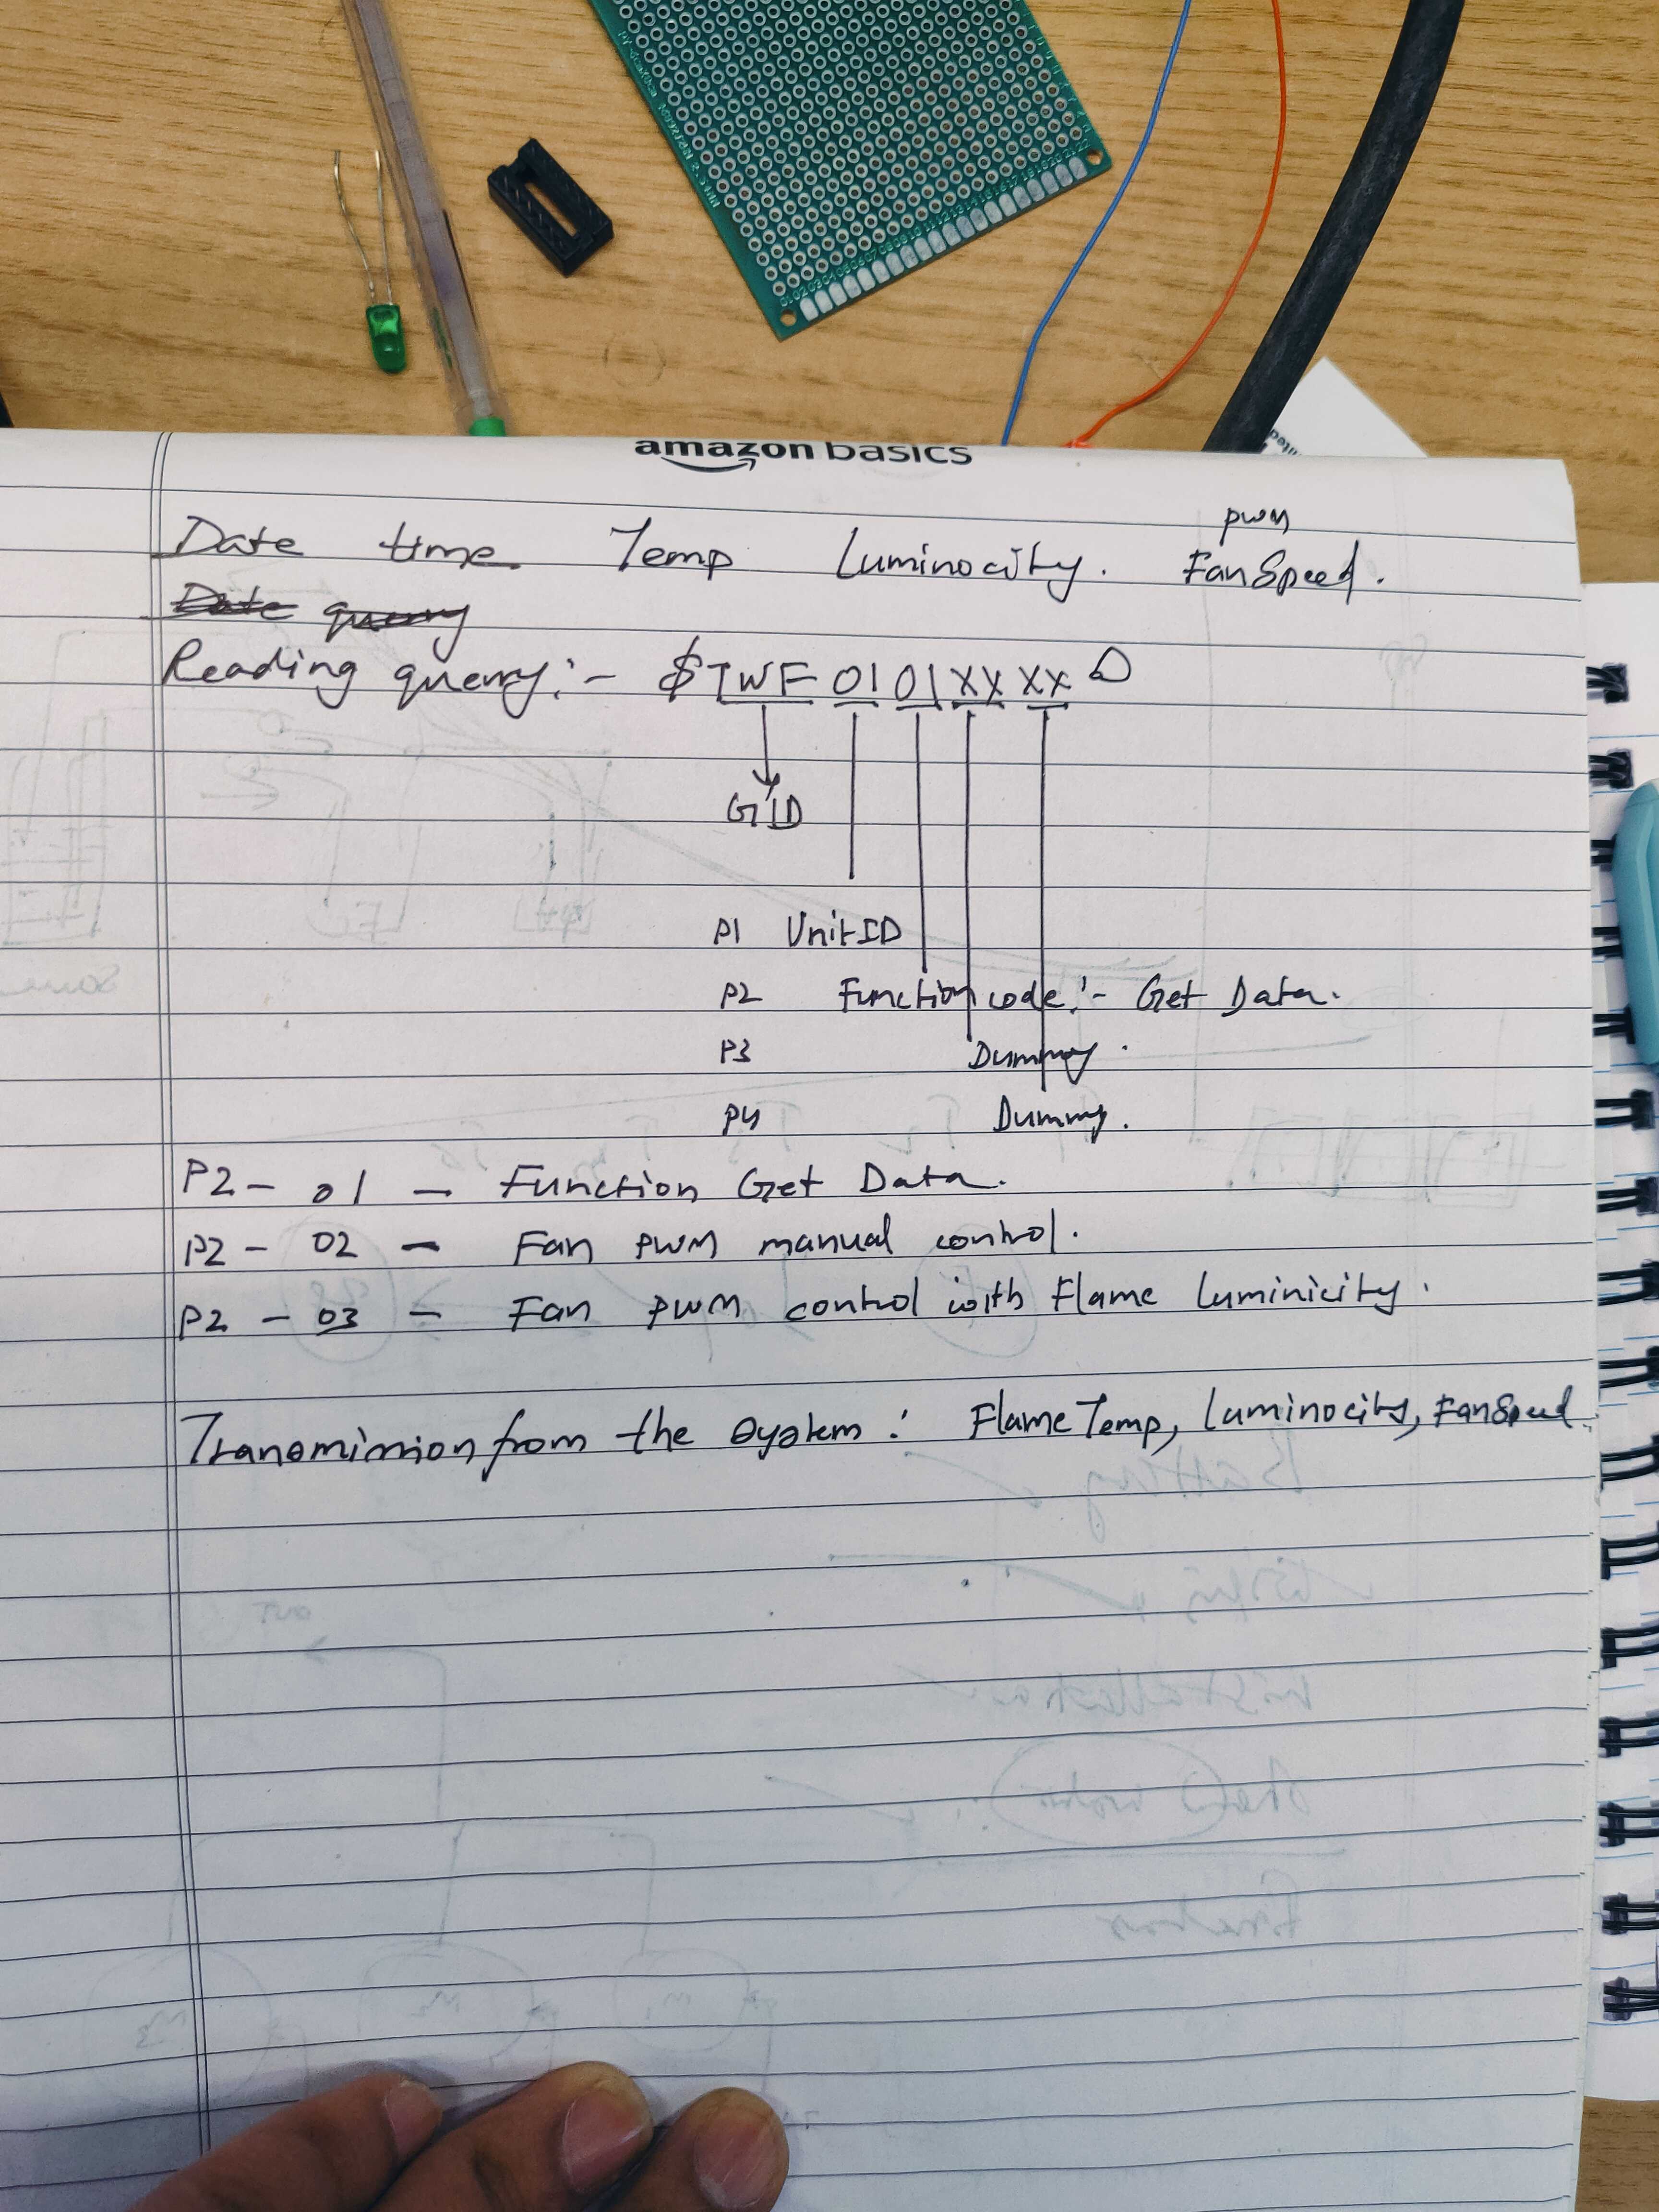 amazon basics
pwm
Date time Temp Luminocity. FanSpeed.
Date query
Reading query:- $TWF 01 01 XX XX
GID
P1 UnitID
P2 Function code:- Get Data.
P3 Dummy.
P4 Dummy.
P2 - 01 - Function Get Data.
P2 - 02 - Fan PWM manual control.
P2 - 03 - Fan PWM control with Flame Luminicity.
Transmission from the system: Flame Temp, Luminocity, FanSpeed.